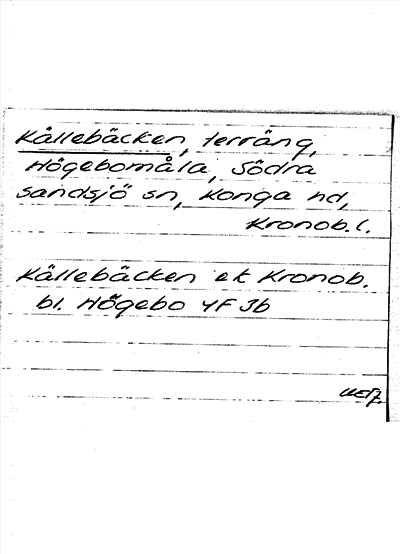 Kållebäcken, terräng,
Högebomåla, Södra
Sandsjö sn, Konga hd,
Kronob. l.
Källebäcken ek Kronob.
bl. Högebo 4F 3b